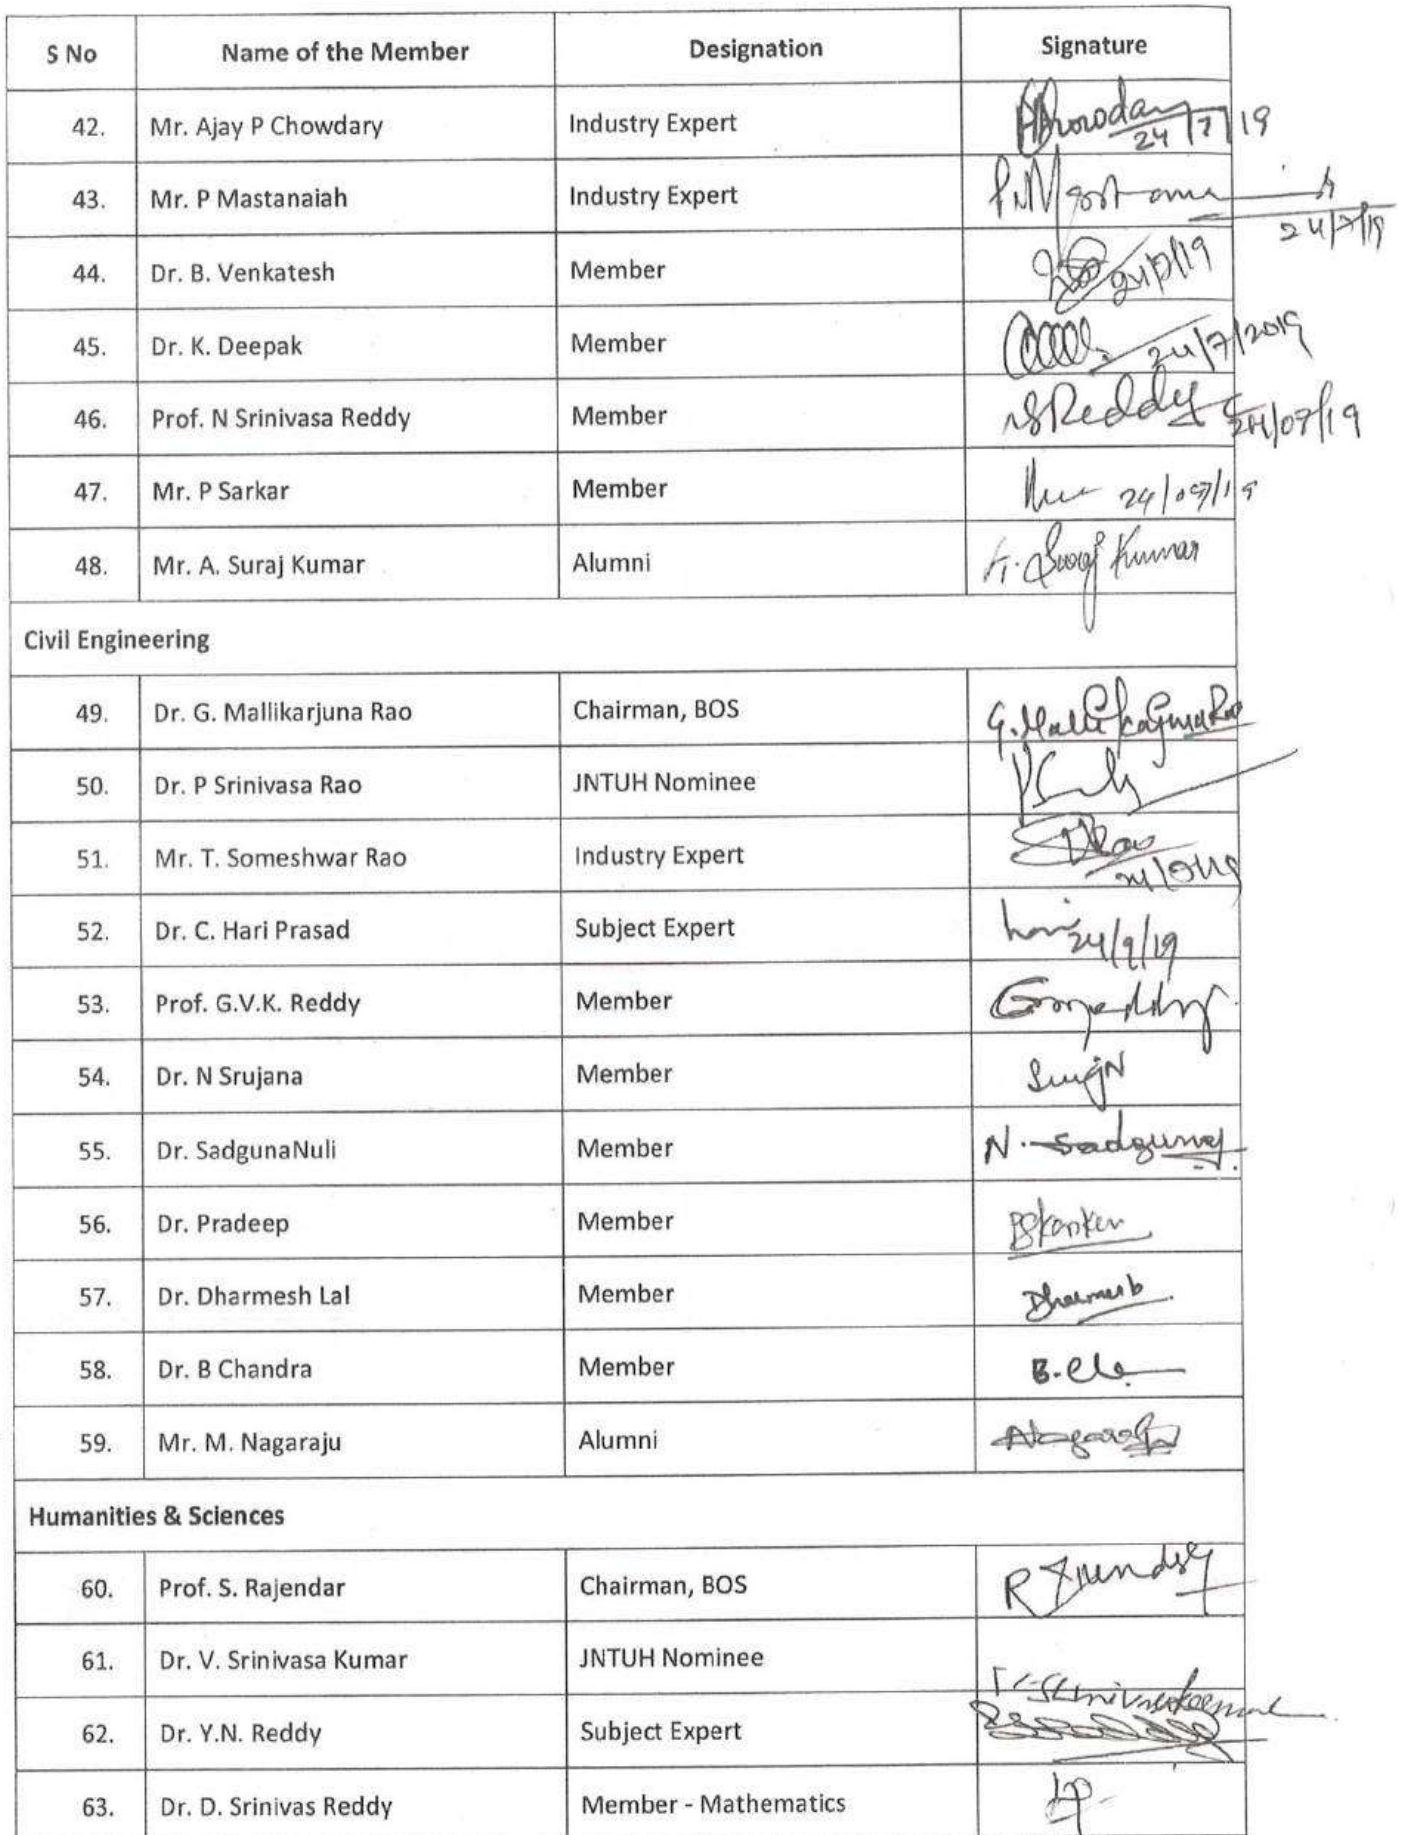 S No Name of the Member Designation Signature
42. Mr. Ajay P Chowdary Industry Expert 24/7/19
43. Mr. P Mastanaiah Industry Expert 24/7/19
44. Dr. B. Venkatesh Member
45. Dr. K. Deepak Member 24/7/2019
46. Prof. N Srinivasa Reddy Member NSReddy 24/07/19
47. Mr. P Sarkar Member 24/07/19
48. Mr. A. Suraj Kumar Alumni A. Suraj Kumar
Civil Engineering
49. Dr. G. Mallikarjuna Rao Chairman, BOS G. Mallikarjuna Rao
50. Dr. P Srinivasa Rao JNTUH Nominee
51. Mr. T. Someshwar Rao Industry Expert
52. Dr. C. Hari Prasad Subject Expert 24/9/19
53. Prof. G.V.K. Reddy Member
54. Dr. N Srujana Member
55. Dr. SadgunaNuli Member N. Sadguna
56. Dr. Pradeep Member
57. Dr. Dharmesh Lal Member Dharmesh
58. Dr. B Chandra Member
59. Mr. M. Nagaraju Alumni Nagaraju
Humanities & Sciences
60. Prof. S. Rajendar Chairman, BOS
61. Dr. V. Srinivasa Kumar JNTUH Nominee
62. Dr. Y.N. Reddy Subject Expert
63. Dr. D. Srinivas Reddy Member - Mathematics